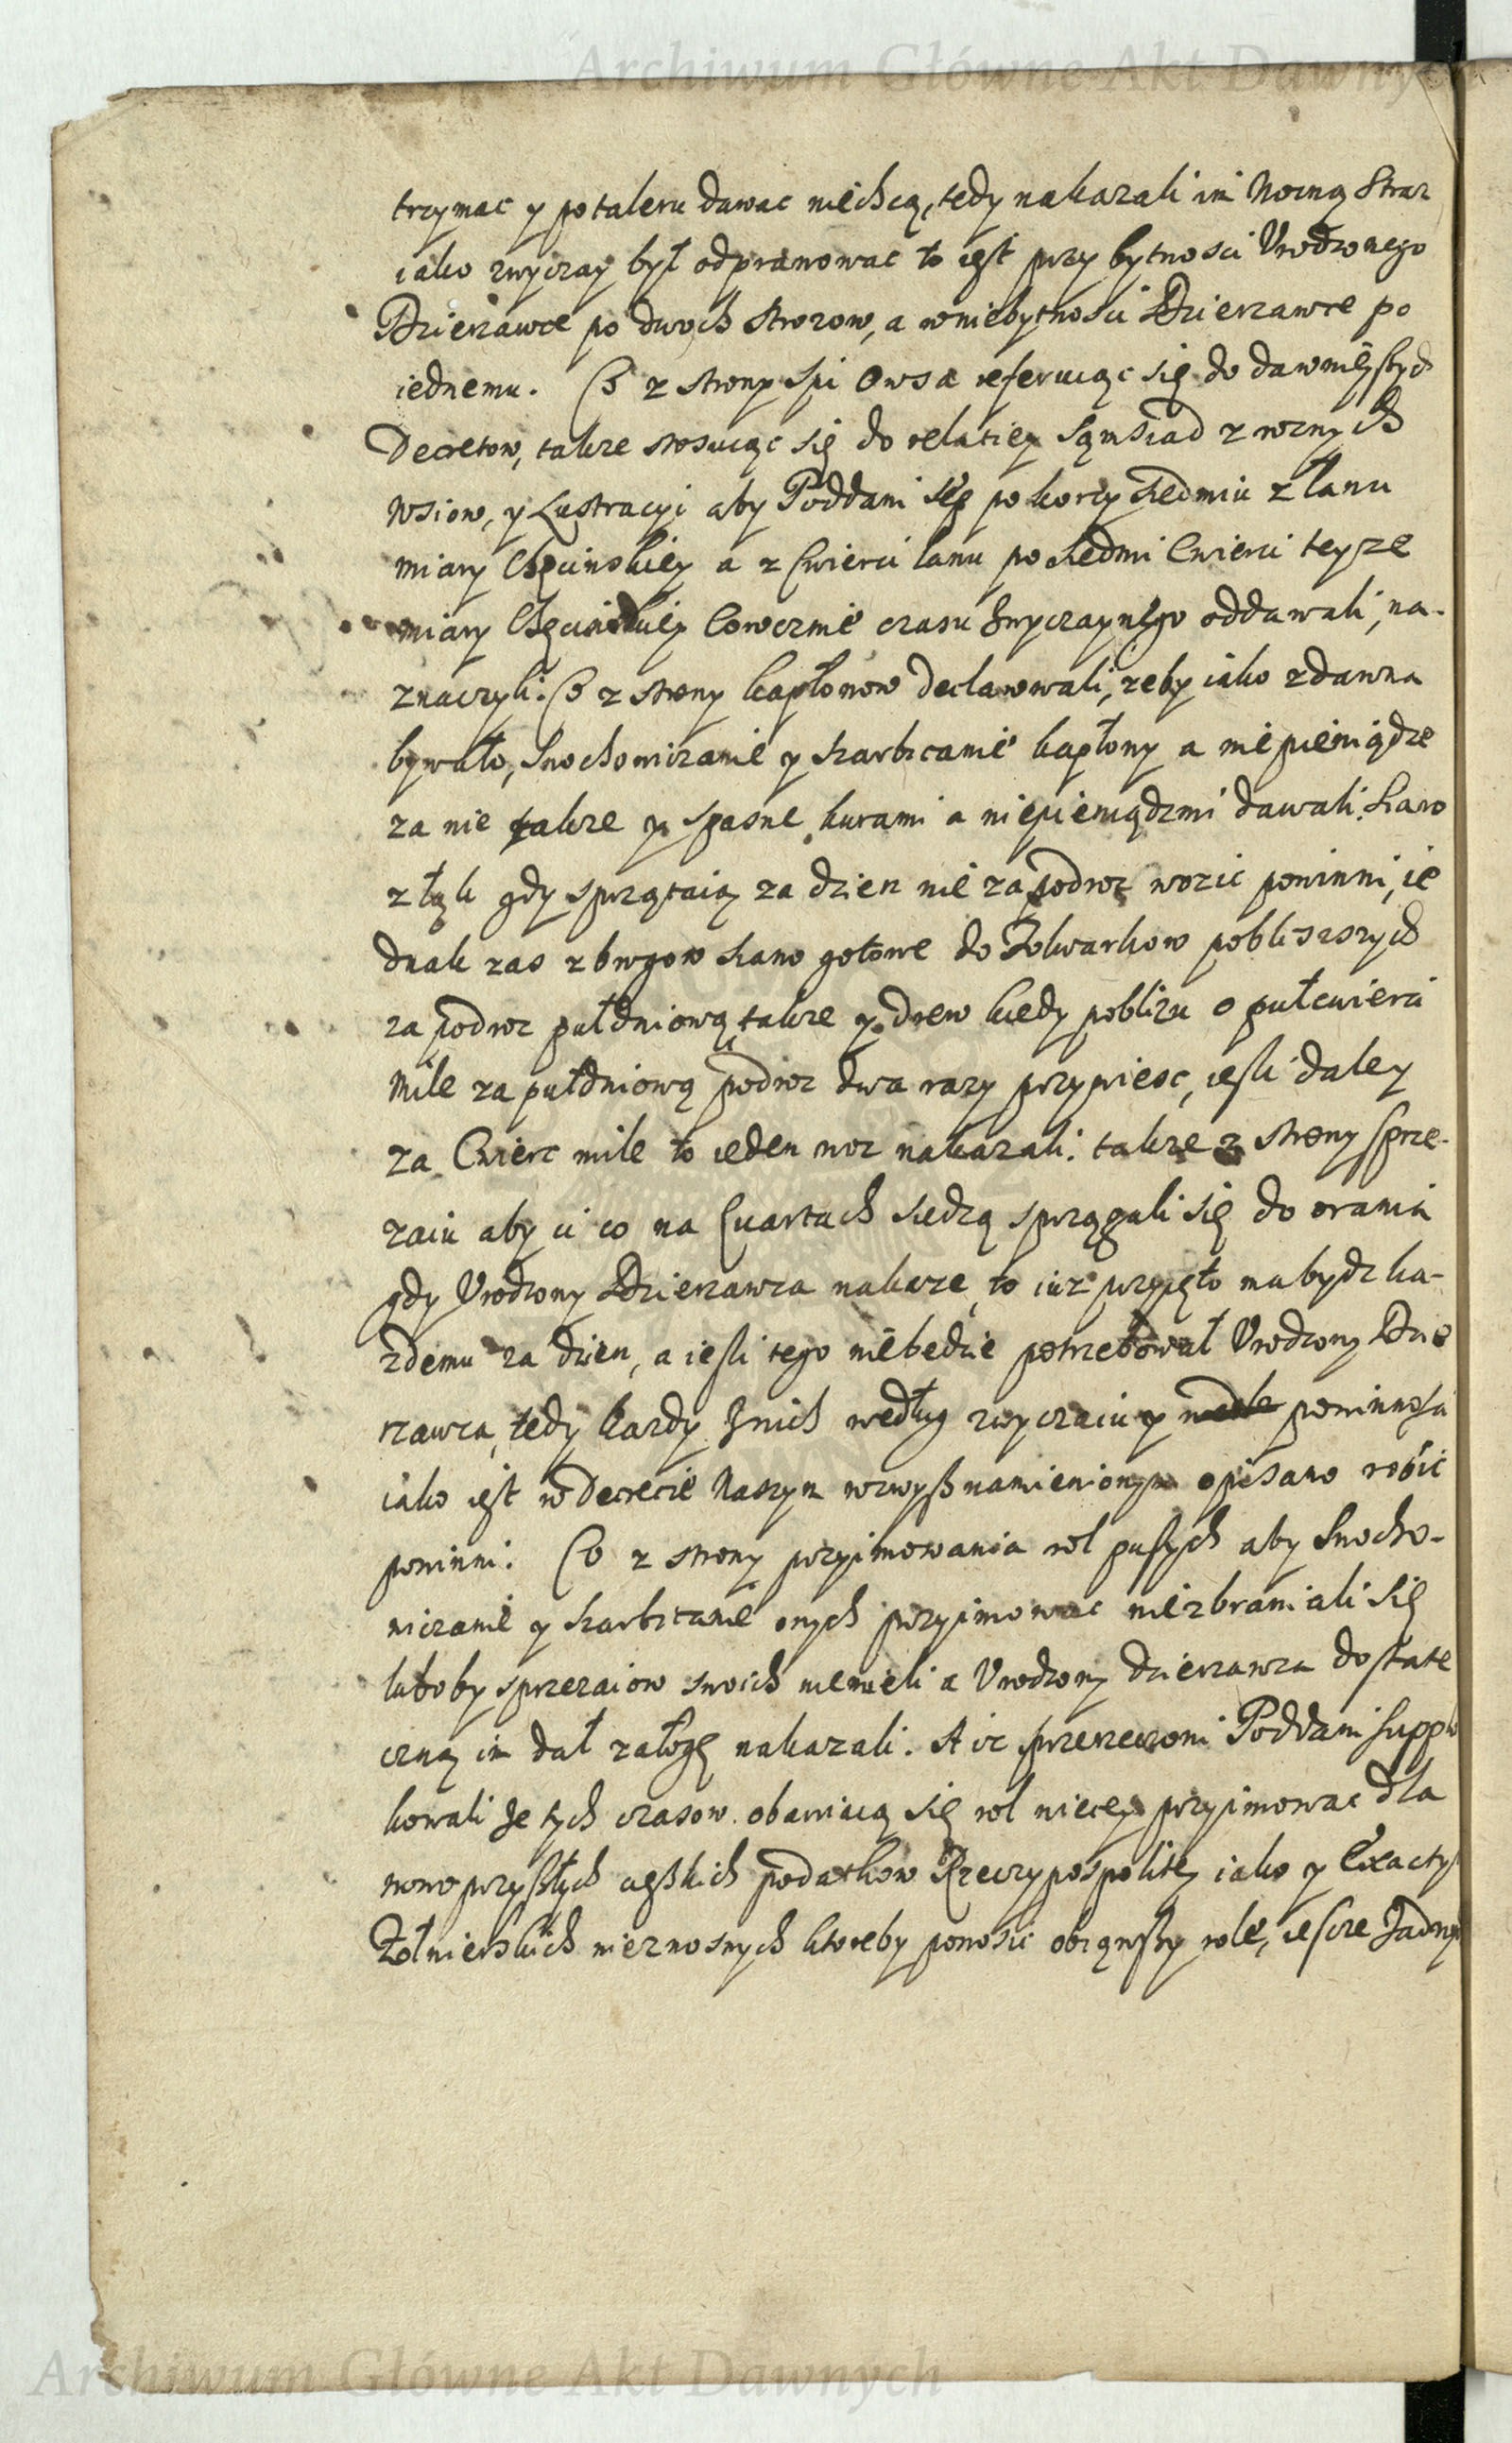 Archiwum Główne Akt Dawnych
trzymac y potaleru dawac niechcą, tedy nakazali im Nocną Straz
iako zwyczay był odprawowac to iest przy bytnosci Vrodzonego
Dzierzawce po dwoch strozow, a wniebytnosci Dzierzawce po
iednemu. Co z strony Spi Owsa referuiąc się do dawnieyszych
Decretow, takze stosuiąc się do relatiey Sąmsiad z roznych
Wsiow, y Lustracyi aby Poddani po korcy siedmiu z łanu
miary Chęcinskiey a z Cwierci łanu po siedmi Cwierci teyze
miary Chęcinskiey Corocznie czasu Zwyczaynego oddawali, na-
znaczyli. Co z strony kapłonow declarowali, zeby iako zdawna
bywało, Snochowiczanie y Skarbczanie kapłony a niepieniądze
za nie takze y spasne kurami a niepieniądzmi dawali. Siano
z łąk gdy sprzątaią za dzien nie za podroz wozic powinni, ie
dnak zas z brogow siano gotowe do Folwarkow pobliszszych
za podroz pułdniową, takze y drew kiedy poblizu o pułcwierci
Mile za pułdniową podroz dwa razy przywiesc, iesli daley
za Cwierc mile to ieden woz nakazali. takze z strony sprze-
zaiu aby ci co na Quartach siedzą sprzągali się do orania
gdy Vrodzony Dzierzawca nakaze, to iuz przyięto ma bydz ka-
zdemu za dzien, a iesli tego niebedzie potrzebował Vrodzony Dzie
rzawca, tedy kazdy Znich według zwyczaiu y powinnosci
iako iest w Decrecie Naszym wzwysz namienionym opisano robic
powinni. Co z strony przyimowania rol pustych aby Snocho-
wiczanie y Skarbczanie onych przyimowac niezbraniali się
luboby sprzezaiow swoich niemieli a Vrodzony dzierzawca dostate
czną im dał załogę nakazali. A iz przerzeczoni Poddani suppli
kowali Ze tych czasow obawiaią się rol wiecey przyimowac dla
nowoprzyszłych cięszkich podatkow Rzeczypospolitey iako y Exacty
Zołnierskich nieznosnych ktoreby ponosic obiąwszy role, iescze Zadnych
Archiwum Główne Akt Dawnych